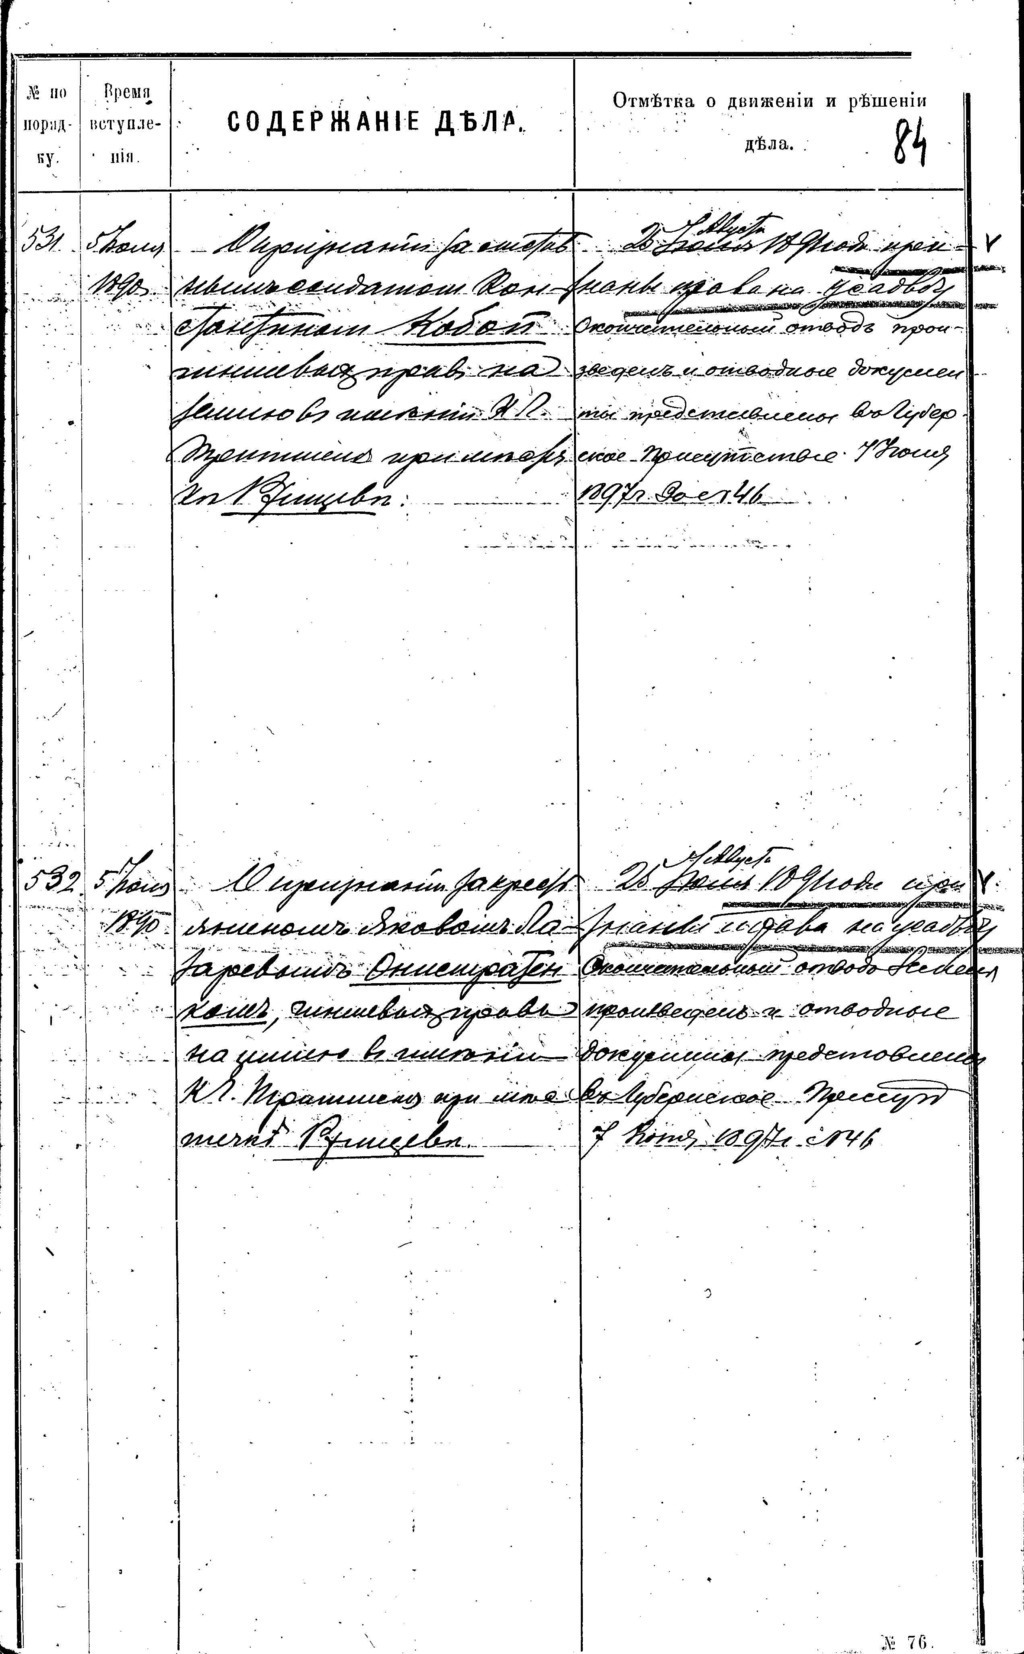 № по порядку.
Время вступленія.
СОДЕРЖАНІЕ ДѢЛА.
Отмѣтка о движеніи и рѣшеніи дѣла.
84
531
5 Іюля
1890
О признаніи за отстав
нымъ солдатомъ Кон-
стантиномъ
чиншевыхъ правъ на
землю въ имѣніи К. Л.
при мѣстеч
кѣ Ржищевѣ.
7 Августа
25 Іюля 189 года приз-
наны права на усадьбу
Окончательный отводъ прои-
зведенъ и отводные докумен
ты представлены въ Губер-
ское Присутствіе 7 Іюня
1897 г. за № 46
532
5 Іюля
1890
О признаніи за крест
яниномъ Яковомъ Ла-
заревымъ Онистратен
комъ, чиншевыхъ правъ
на землю въ имѣніи
К. Л. при мѣс
течкѣ Ржищевѣ.
7 Августа
25 Іюля 189 года при
знаны права на усадьбу
Окончательный отводъ
произведенъ и отводные
документы представлены
въ Губернское Присут
7 Іюня 1897 г. № 46
№ 76.